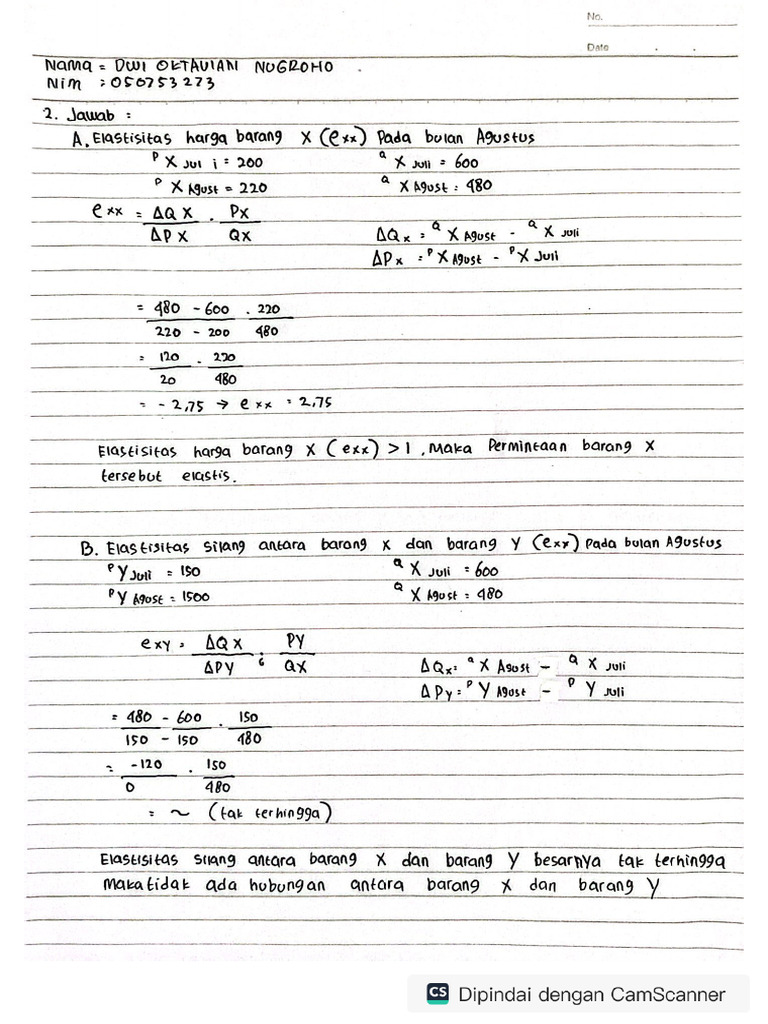 No.
Date
Nama = DWI OKTAVIANI NUGROHO
Nim : 050753273
2. Jawab :
A. Elastisitas harga barang X (exx) Pada bulan Agustus
P X Jul i = 200    Q X Juli = 600
P X Agust = 220    Q X Agust : 480
exx = ΔQX/ΔPX . Px/Qx    ΔQx : Q X Agust - Q X Juli
ΔPx : P X Agust - P X Juli
= 480 - 600 / 220 - 200 . 220/480
= 120/20 . 220/480
= - 2,75 → exx : 2,75
Elastisitas harga barang X (exx) > 1, Maka Permintaan barang X
tersebut elastis.
B. Elastisitas Silang antara barang X dan barang Y (exy) Pada bulan Agustus
P Y Juli = 150    Q X Juli = 600
P Y Agust = 1500    Q X Agust = 480
exy = ΔQX/ΔPY : PY/QX    ΔQx = Q X Agust - Q X Juli
ΔPy = P Y Agust - P Y Juli
= 480 - 600 / 150 - 150 . 150/480
= -120/0 . 150/480
= ~ (tak terhingga)
Elastisitas Silang antara barang X dan barang Y besarnya tak terhingga
Maka tidak ada hubungan antara barang X dan barang Y
CS Dipindai dengan CamScanner